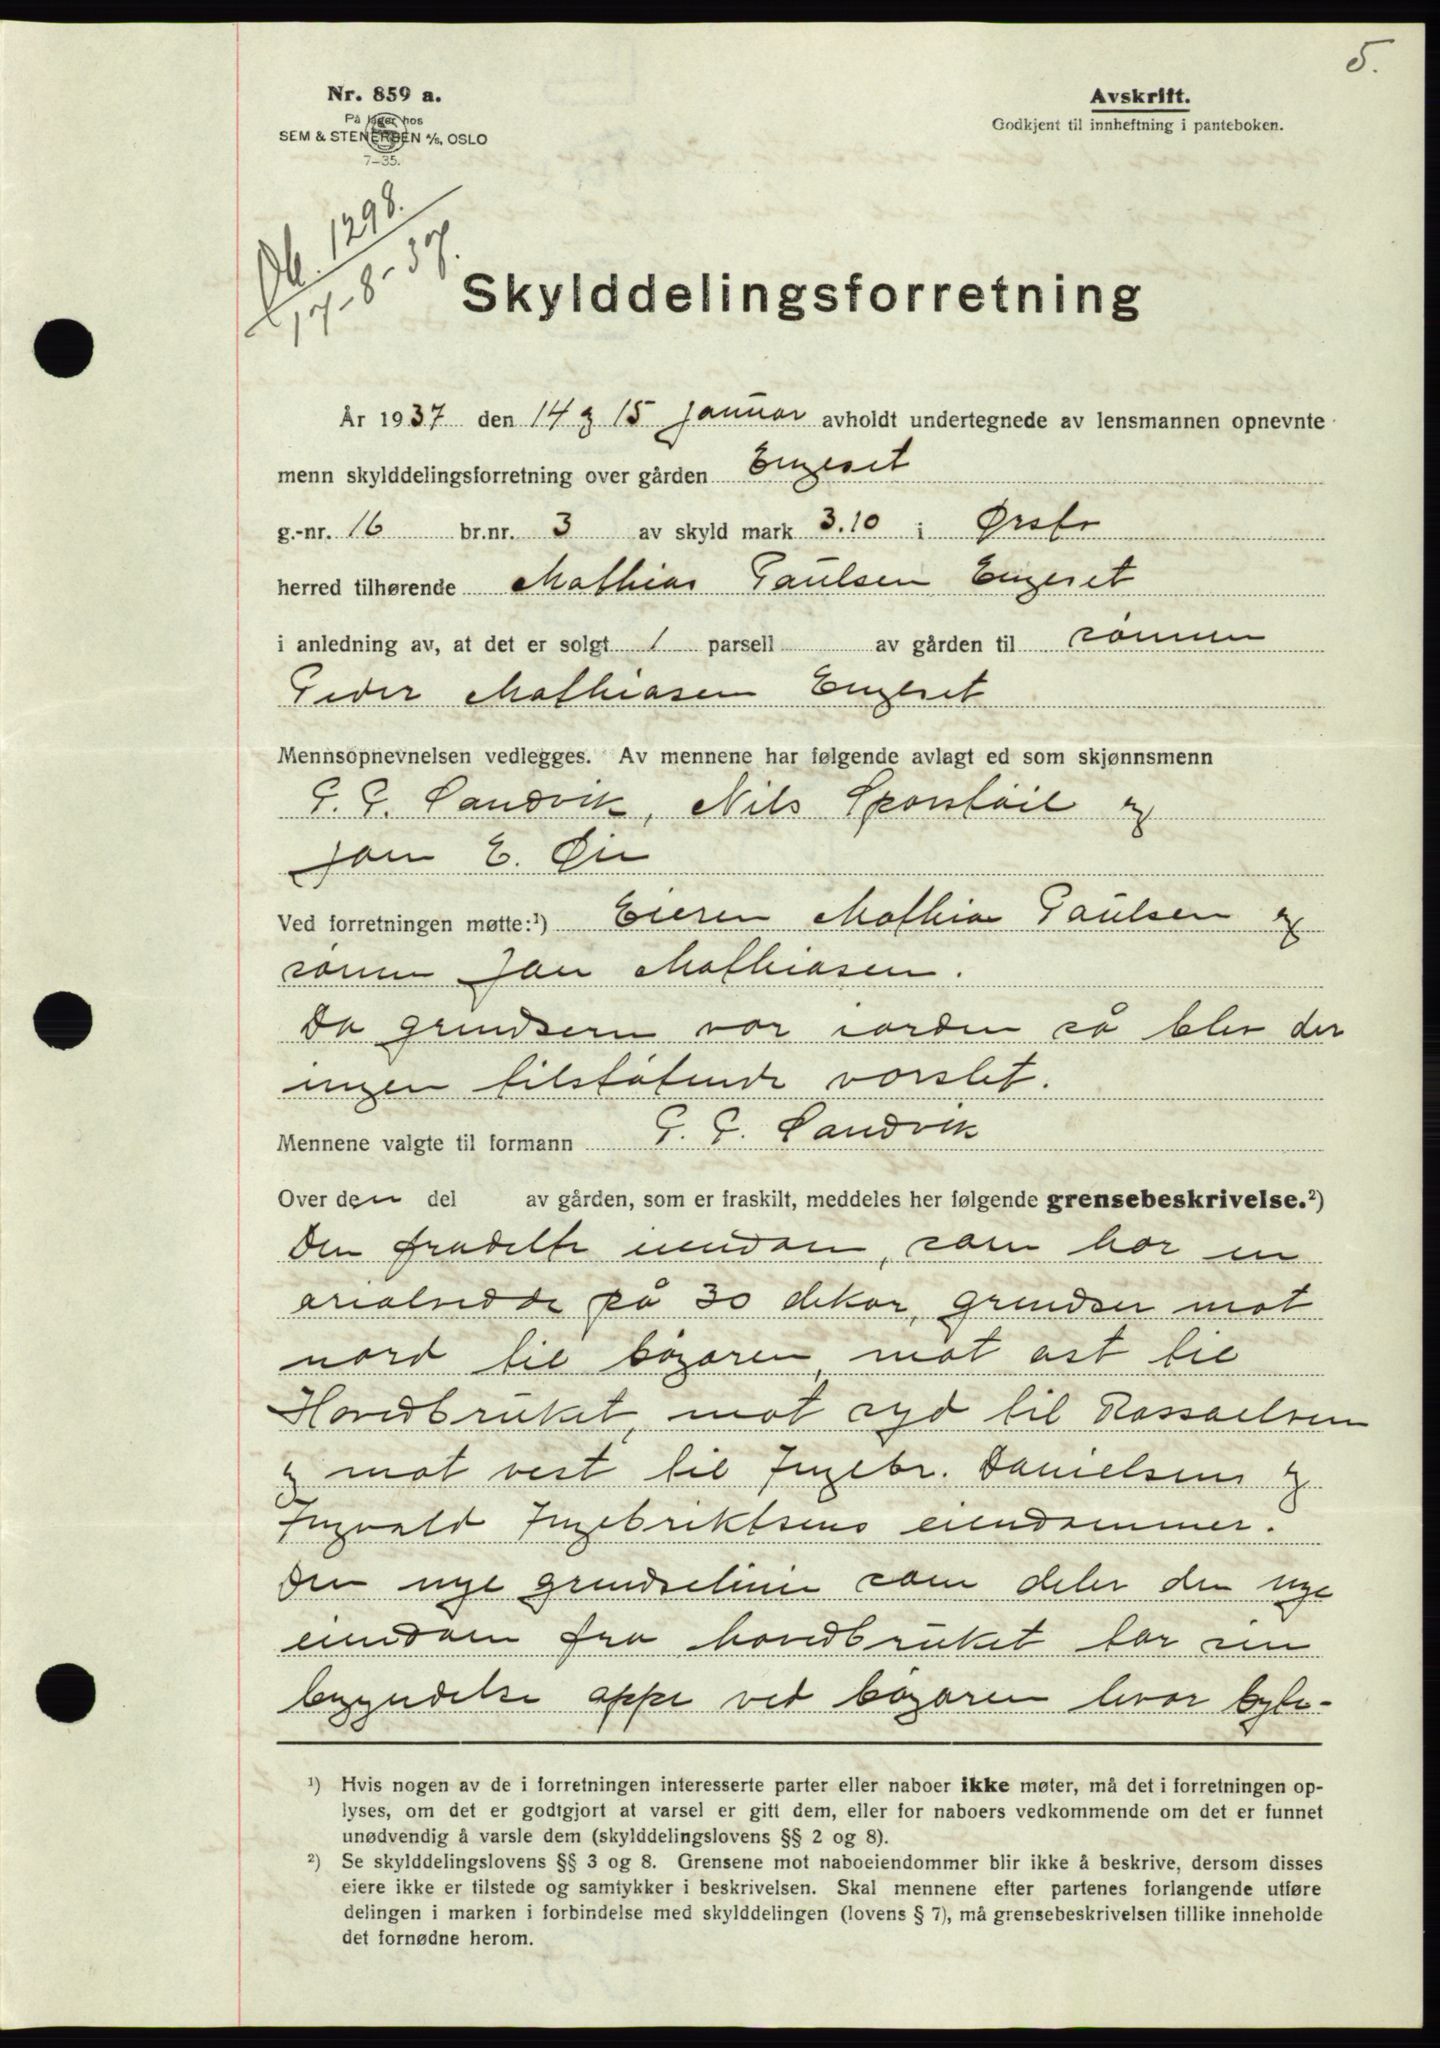 5.
Nr. 859 a.
På lager hos
SEM & STENERSEN A/S, OSLO
7-35.
Avskrift.
Godkjent til innheftning i panteboken.
Db. 1298.
17-8-37.
Skylddelingsforretning
År 1937 den 14 og 15 januar avholdt undertegnede av lensmannen opnevnte
menn skylddelingsforretning over gården Engeset
g.-nr. 16 br.nr. 3 av skyld mark 3.10 i Ørsta
herred tilhørende Mathias Paulsen Engeset
i anledning av, at det er solgt 1 parsell av gården til sønnen
Peder Mathiasen Engeset
Mennsopnevnelsen vedlegges. Av mennene har følgende avlagt ed som skjønnsmenn
P. P. Sandvik, Nils Sporstøil og
E. Øie
Ved forretningen møtte:¹) Eieren Mathias Paulsen og
sønnen Jan Mathiasen.
Da grendsern var i orden så blev der
ingen tilstøtende varslet.
Mennene valgte til formann P. P. Sandvik
Over den del av gården, som er fraskilt, meddeles her følgende grensebeskrivelse.²)
Den fradelte eiendom, som har en
arialvidde på 30 dekar, grendser mot
nord til bøgaren, mot øst til
Hovedbruket, mot syd til Rossaelven
og mot vest til Ingebr. Danielsens og
Ingvald Ingebriktsens eiendommer.
Den nye grendselinie som deler den nye
eiendom fra hovedbruket tar sin
begyndelse oppe ved bøgaren hvor byte-
¹) Hvis nogen av de i forretningen interesserte parter eller naboer ikke møter, må det i forretningen op-
lyses, om det er godtgjort at varsel er gitt dem, eller for naboers vedkommende om det er funnet
unødvendig å varsle dem (skylddelingslovens §§ 2 og 8).
²) Se skylddelingslovens §§ 3 og 8. Grensene mot naboeiendommer blir ikke å beskrive, dersom disses
eiere ikke er tilstede og samtykker i beskrivelsen. Skal mennene efter partenes forlangende utføre
delingen i marken i forbindelse med skylddelingen (lovens § 7), må grensebeskrivelsen tillike inneholde
det fornødne herom.